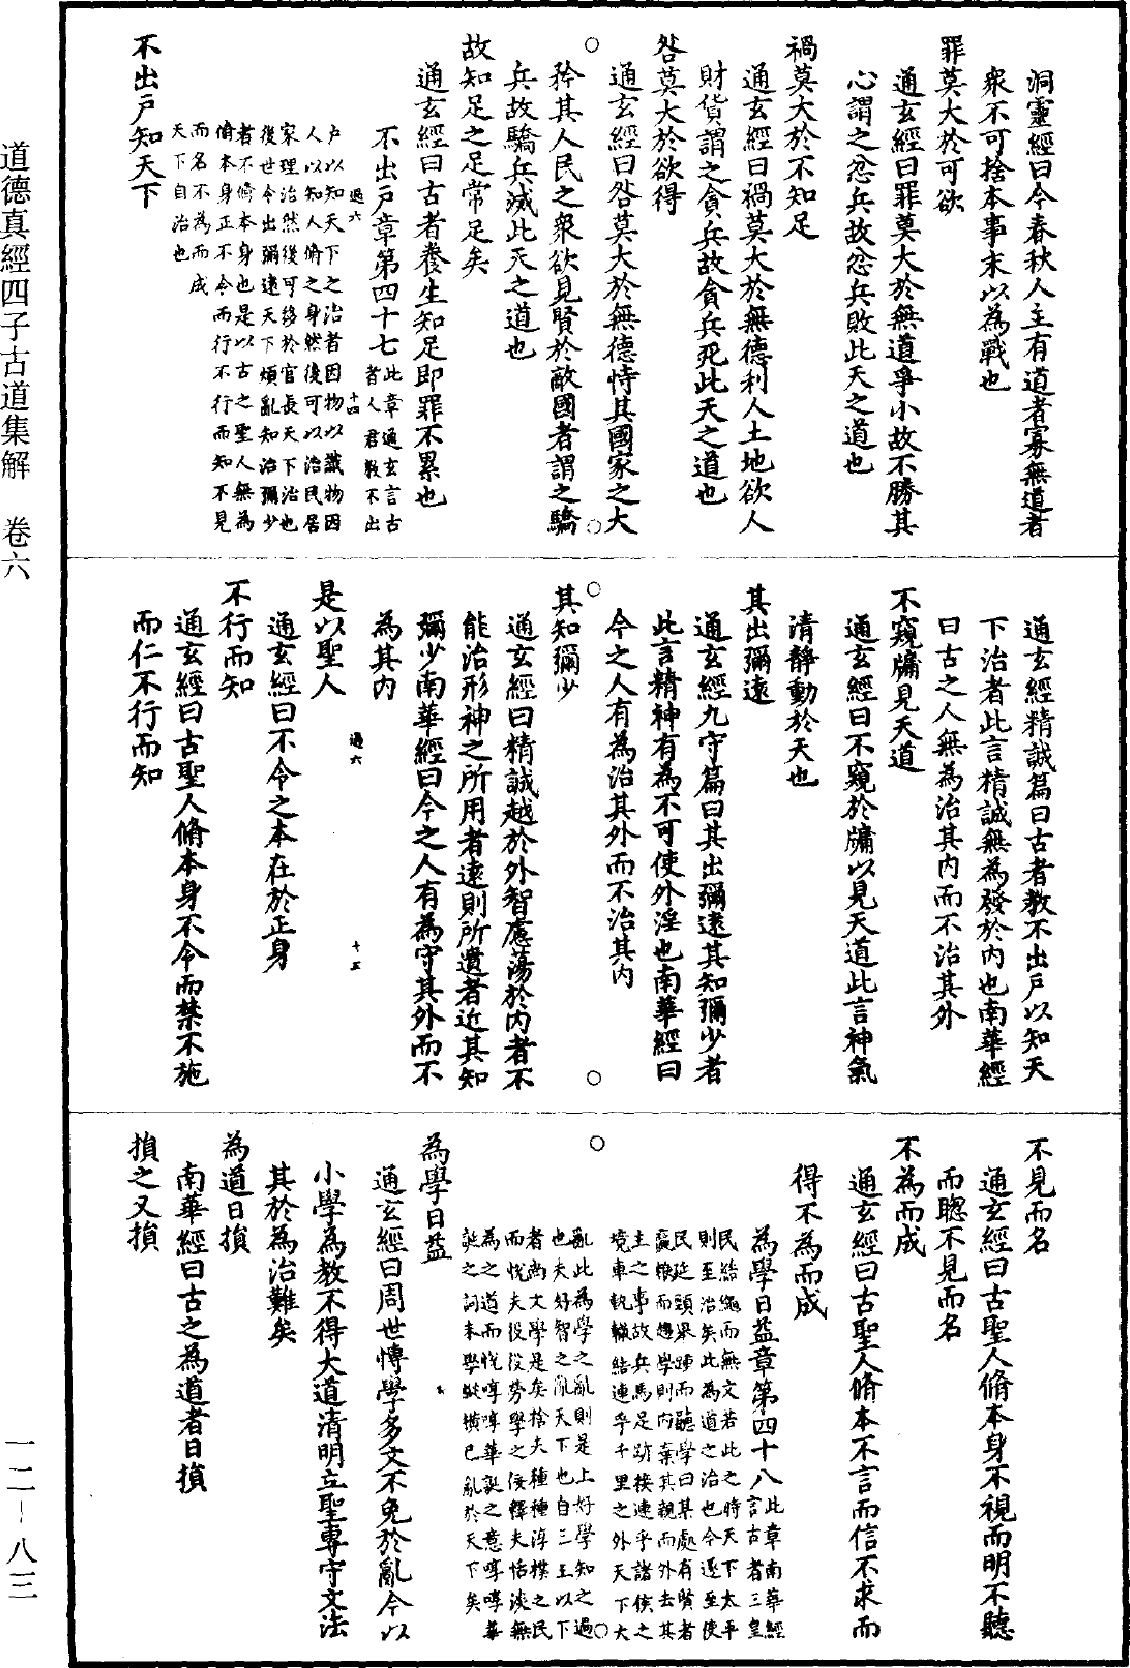 洞靈經曰今春秋人主有道者寡無道者
衆不可捨本事末以為戰也
罪莫大於可欲
通玄經曰罪莫大於無道爭小故不勝其
心謂之忿兵故忿兵敗此天之道也
禍莫大於不知足
通玄經曰禍莫大於無德利人土地欲人
財貨謂之貪兵故貪兵死此天之道也
咎莫大於欲得
通玄經曰咎莫大於無德恃其國家之大
矜其人民之衆欲見賢於敵國者謂之驕
兵故驕兵滅此天之道也
故知足之足常足矣
通玄經曰古者養生知足即罪不累也
不出戶章第四十七
此章通玄言古
者人君教不出
過六 十四
戶以知天下之治者因物以識物因
人以知人脩之身然後可以治民居
家理治然後可移於官長天下治也
後世今出彌遠天下煩亂知治彌少
者不脩本身也是以古之聖人無為
脩本身正不令而行不行而知不見
而名不為而成
天下自治也
不出戶知天下
通玄經精誠篇曰古者教不出戶以知天
下治者此言精誠無為發於內也南華經
曰古之人無為治其內而不治其外
不窺牖見天道
通玄經曰不窺於牖以見天道此言神氣
清靜動於天也
其出彌遠
通玄經九守篇曰其出彌遠其知彌少者
此言精神有為不可使外淫也南華經曰
今之人有為治其外而不治其內
其知彌少
通玄經曰精誠越於外智慮蕩於內者不
能治形神之所用者遠則所遺者近其知
彌少南華經曰今之人有為守其外而不
為其內
過六 十五
是以聖人
通玄經曰不令之本在於正身
不行而知
通玄經曰古聖人脩本身不令而禁不施
而仁不行而知
不見而名
通玄經曰古聖人脩本身不視而明不聽
而聰不見而名
不為而成
通玄經曰古聖人脩本不言而信不求而
得不為而成
為學日益章第四十八
此章南華經
言古者三皇
民結繩而無文若此之時天下太平
則至治矣此為道之治也今遂至使
民延頸舉踵而聽學曰某處有賢者
羸糧而趨學則內棄其親而外去其
主之事故兵馬足跡接連乎諸侯之
境車軌轍結連乎千里之外天下大
亂此為學之亂則是上好學知之過
也夫好智之亂天下也自三王以下
者尚文學是矣捨夫種種淳樸之民
而悅夫役役勞學之佞釋夫恬淡無
為之道而悅啍啍華誕之意啍啍華
誕之詞末學縱橫已亂於天下矣
為學日益
通玄經曰周世慱學多文不免於亂今以
小學為教不得大道清明立聖專守文法
其於為治難矣
為道日損
南華經曰古之為道者日損
損之又損
道德真經四子古道集解 卷六
一二—八三